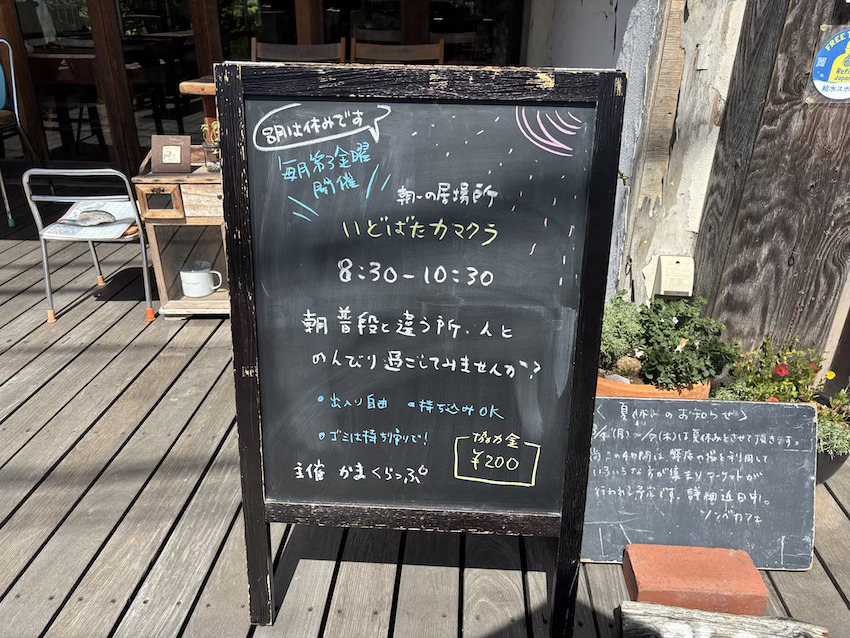 8月は休みです
毎月第3金曜
開催
朝一の居場所
いどばたカマクラ
8:30-10:30
朝 普段と違う所、人と
のんびり過ごしてみませんか?
•出入り自由 •持ち込みOK
•ゴミは持ち帰りで!
協力金
¥200
主催 かまくらっぷ
<夏休みのお知らせ>
(月)〜(木)は夏休みとさせて頂きます。
尚この期間は
の場を利用して
いろいろな方が集まりマーケットが
行われる予定です。詳細近日中。
ソンベカフェ
FREE
Refill
Japan
給水スポ